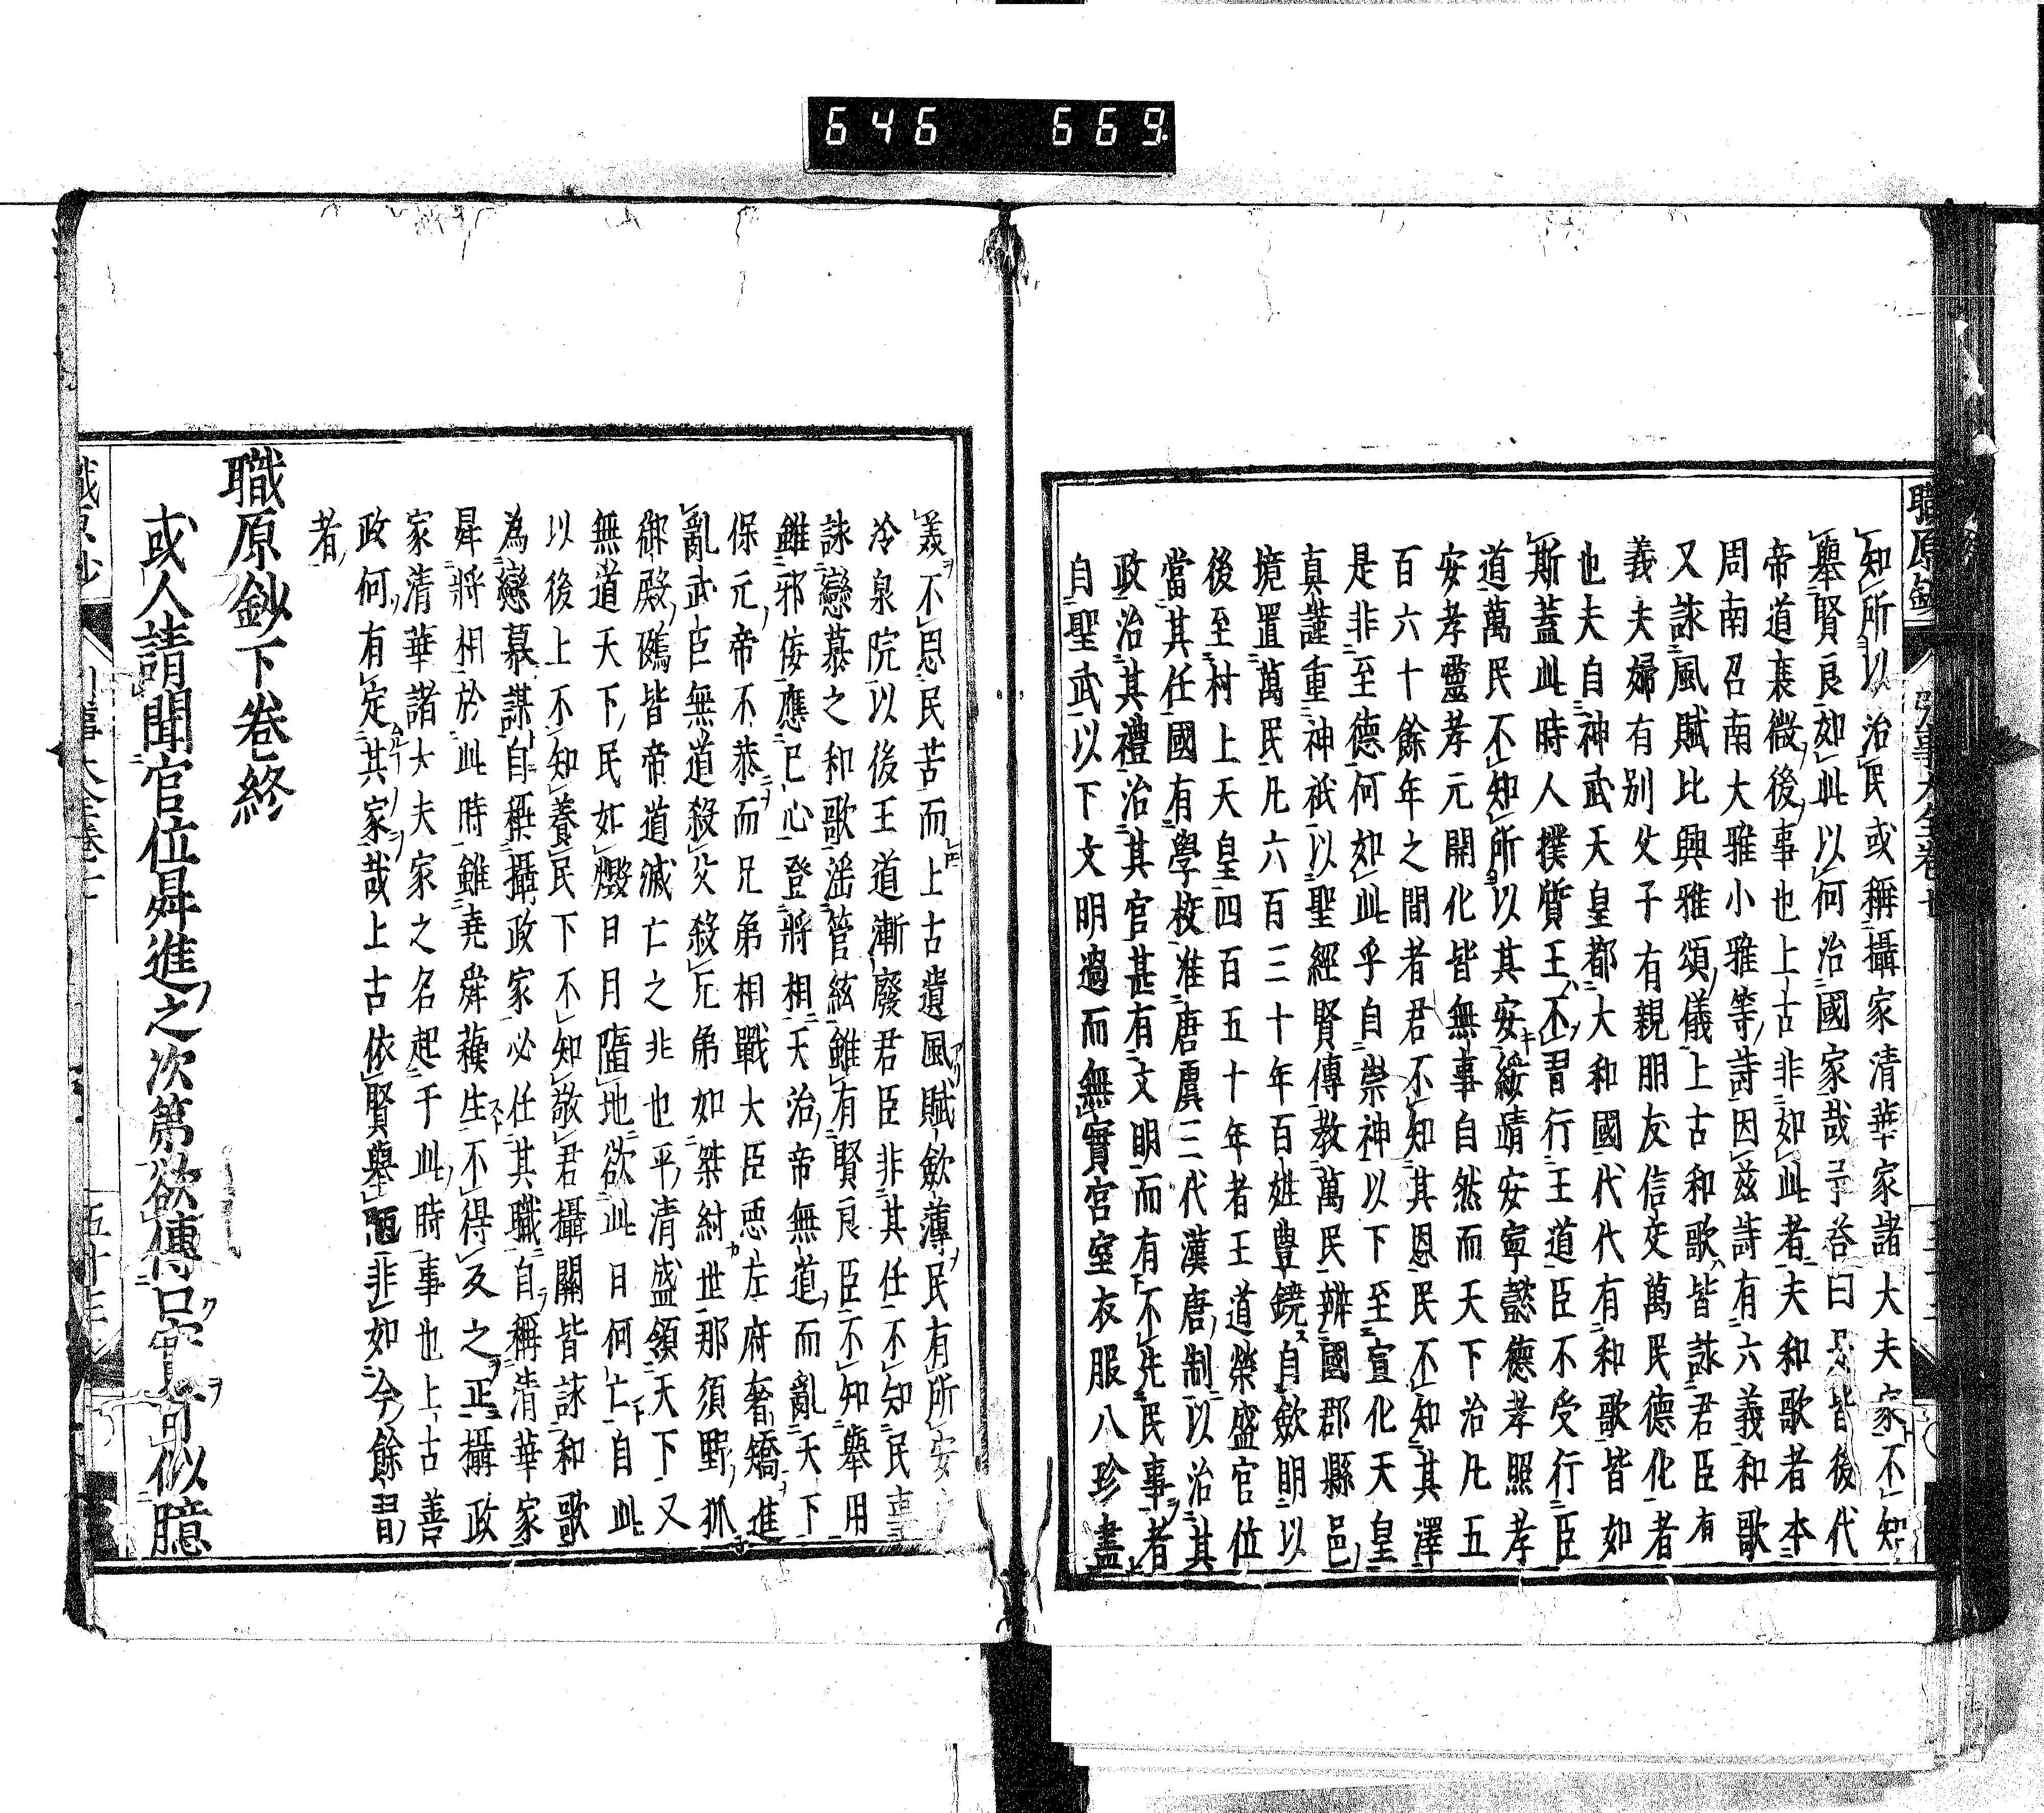 646 669
知所以治民或稱攝家清華家諸大夫家不知
舉賢良如此以何治國家哉予答曰皆後代
帝道衰微後事也上古非如此者夫和歌者本
周南召南大雅小雅等詩因茲詩有六義和歌
又詠風賦比興雅頌儀上古和歌皆詠君臣有
義夫夫婦有別父子有親朋友信交萬民德化者
也夫自神武天皇都大和國代代有和歌皆如
斯蓋此時人撲質王不習行王道臣不受行臣
道萬民不知所以其安綏靖安寧懿德孝照孝
安孝靈孝元開化皆無事自然而天下治凡五
百六十餘年之間者君不知其恩民不知其澤
是非至德何如此乎自崇神以下至宣化天皇
真謹重神祇以聖經賢傳教萬民辨國郡縣邑
境置萬民凡六百三十年百姓豊饒自歛明以
後至村上天皇四百五十年者王道榮盛官位
當其任國有學校准唐虞三代漢唐制以治其
政治其禮治其官甚有文明而有不先民事者
自聖武以下文明過而無實宮室衣服八珍盡
義不思民苦而上古遺風賦歛薄民有所安
冷泉院以後王道漸廢君臣非其任不知民事
詠戀慕之和歌謡管絃雖有賢良臣不知舉用
雖邪侫應已心登將相天治帝無道而亂天下
保元帝不恭而兄弟相戰大臣惡左府奢矯進
亂武臣無道殺父殺兄弟如桀紂世那須野狐
御殿鵺皆帝道滅亡之非也平清盛領天下又
無道天下民如燬日月隨地欲此日何亡自此
以後上不知養民下不知敬君攝關皆詠和歌
為戀慕謀自稱攝政家必任其職自稱清華家
昇將相於此時雖堯舜蘓生不得及之正攝政
家清華諸大夫家之名起于此時事也上古善
政何有定其家哉上古依賢舉恧非如今餘習
者
職原鈔下卷終
或人請聞官位昇進之次第欲傳口實可似臆